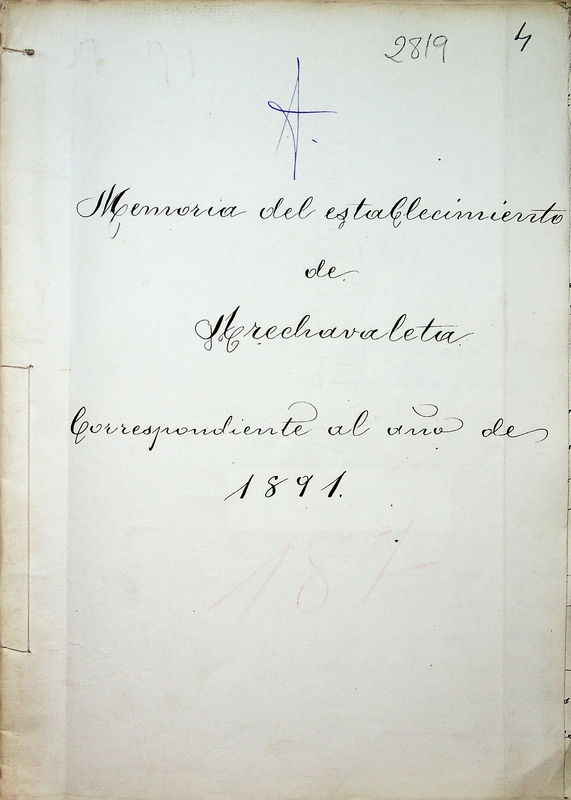 2819
4
A.
Memoria del establecimiento
de
Arechavaleta.
Correspondiente al año de
1891.
187